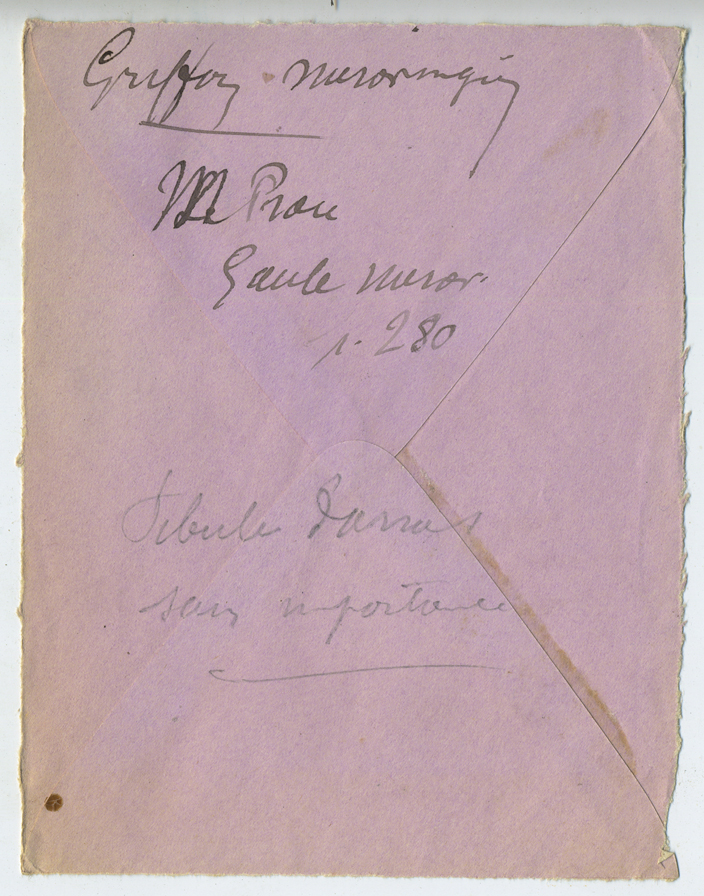 Griffon merovingien
M Prou
Gaule merov.
p. 280
fibule d'Arras
sans importance